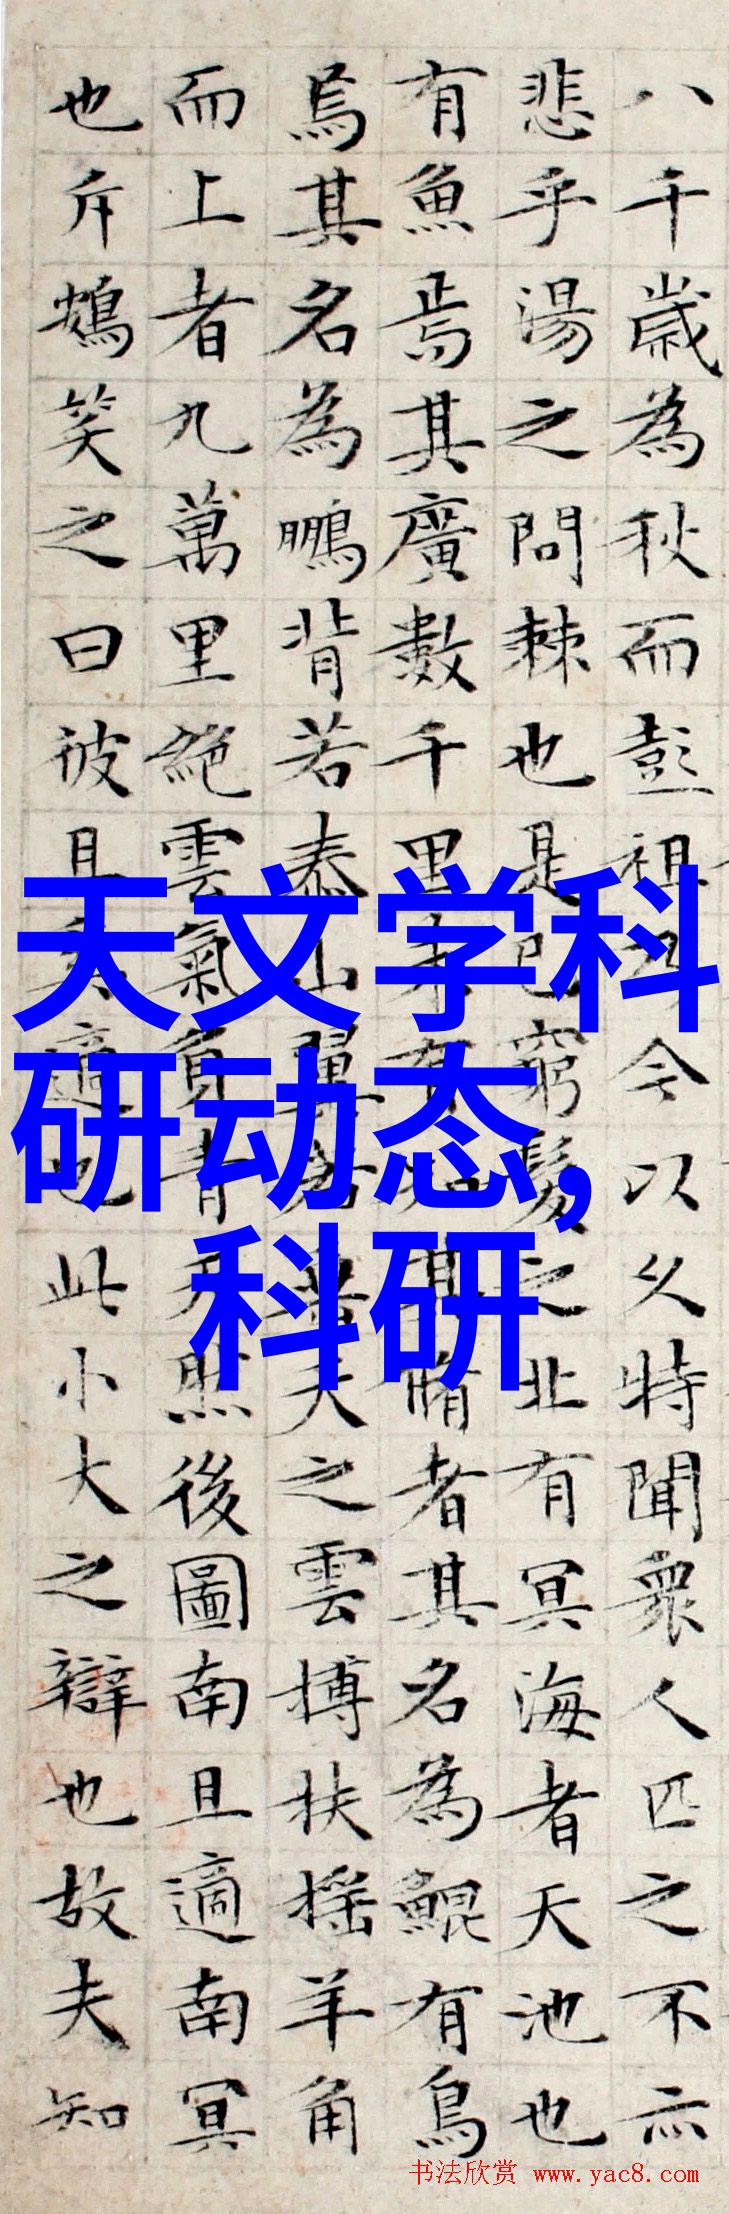 八千歲為秋而彭祖乃今以久特聞衆人匹之不亦
悲乎湯之問棘也是已窮髮之北有冥海者天池也
有魚焉其廣數千里未有知其脩者其名為鯤有鳥
焉其名為鵬背若泰山翼若垂天之雲搏扶搖羊角
而上者九萬里絕雲氣負青天然後圖南且適南冥
也斥鴳笑之曰彼且奚適也此小大之辯也故夫知
天文学科
研动态,
科研
书法欣赏 www.yac8.com